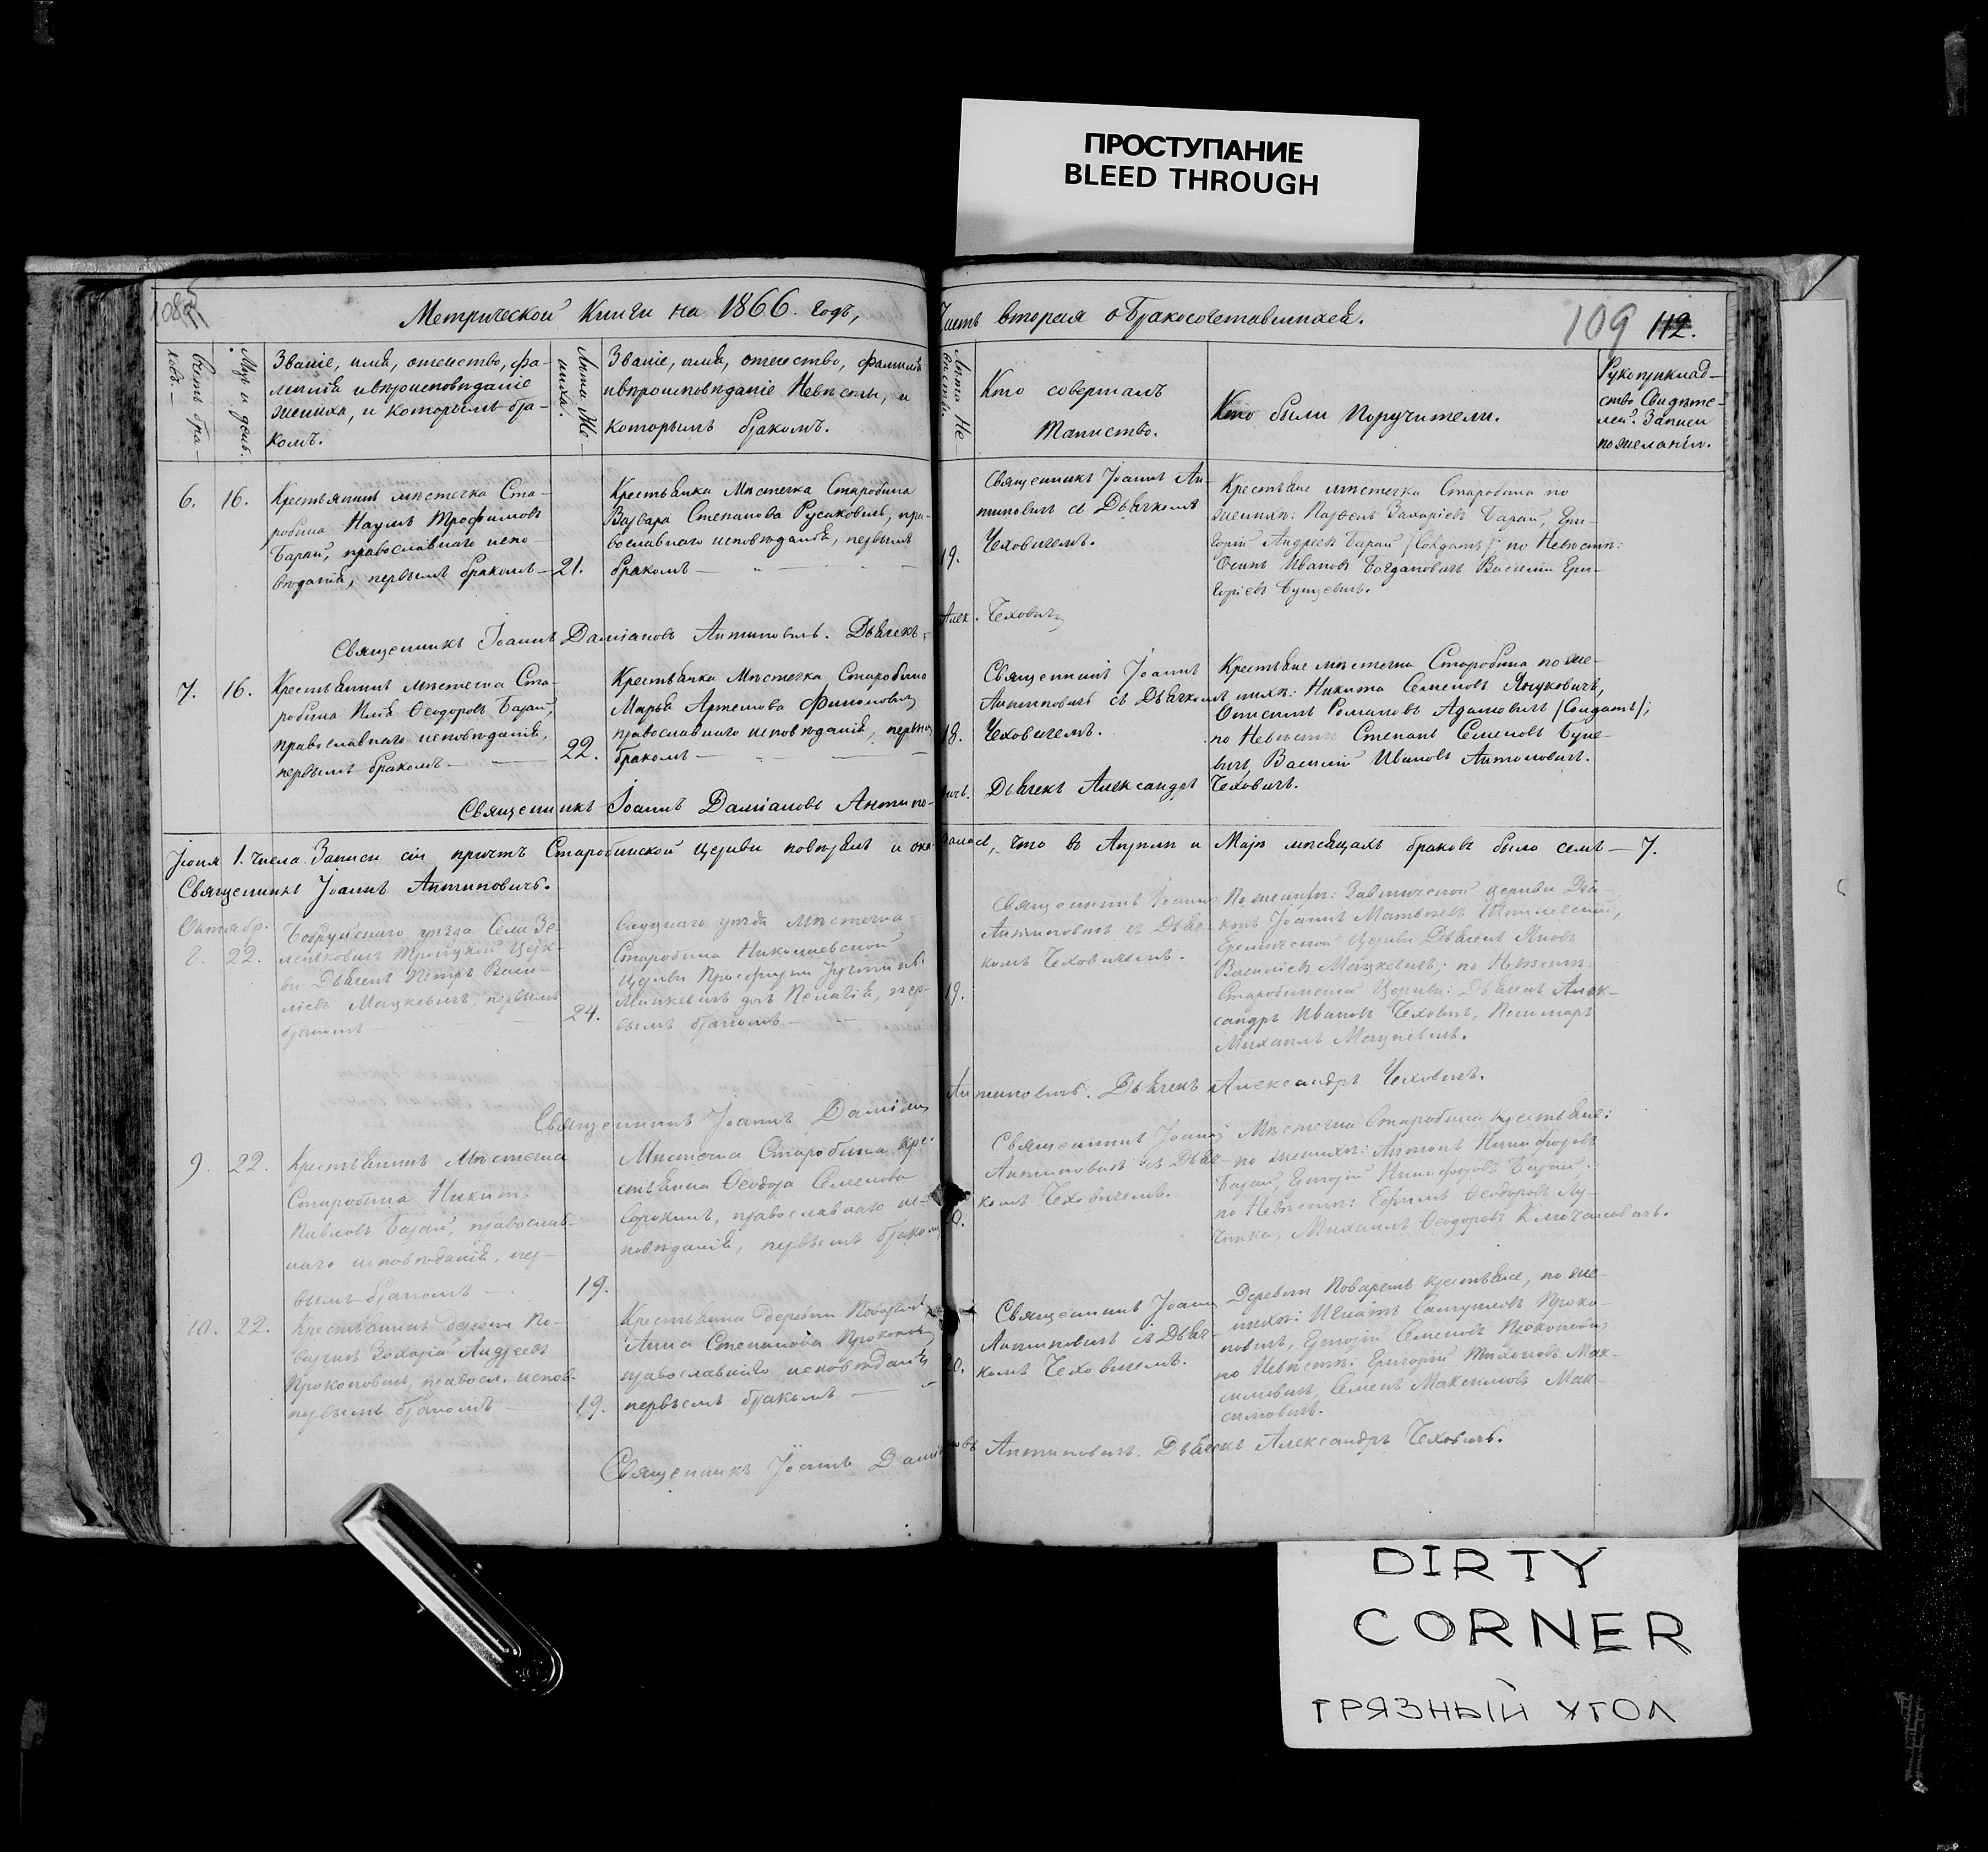 ПРОСТУПАНИЕ
BLEED THROUGH
Метрической Книги на 1866. годъ,
Часть вторая о бракосочетавшихся.
109 112.
Счетъ бра-
ковъ.
Мѣс. и день.
Званіе, имя, отечество, фа-
милія и вѣроисповѣданіе
жениха, и которымъ бра-
комъ.
Лѣта Же-
ниха.
Званіе, имя, отечество, фамилія
и вѣроисповѣданіе Невѣсты, и
которымъ бракомъ.
Лѣта Не-
вѣсты.
Кто совершалъ
Таинство.
Кто были Поручители.
Рукоприклад-
ство Свидѣте-
лей Записи
по желанію.
6. 16.
Крестьянинъ мѣстечка Ста-
робина Наумъ Трофимовъ
Баран, православнаго испо-
вѣданія, первымъ бракомъ — 21.
Крестьянка Мѣстечка Старобина
Варвара Степанова Русаковичъ, пра-
вославнаго исповѣданія, первымъ
бракомъ —
19.
Священникъ Іоаннъ Ан-
типовичъ съ Дьячкомъ
Чеховичемъ.
Крестьяне мѣстечка Старобина по
женихѣ: Павелъ Захаріевъ Баран, Гри-
горій Андреевъ Баран (Солдатъ); по Невѣстѣ:
Осипъ Ивановъ Богдановичъ Василій Гри-
горіевъ
Священникъ Іоаннъ Даміановъ Антиповичъ. Дьячекъ Алек. Чеховичъ
7. 16.
Крестьянинъ мѣстечка Ста-
робина Илія Ѳеодоровъ Баран,
православнаго исповѣданія,
первымъ бракомъ — 22.
Крестьянка Мѣстечка Старобина
Марья Артемова
православнаго исповѣданія, первымъ
бракомъ —
18.
Священникъ Іоаннъ
Антиповичъ съ Дьячкомъ
Чеховичемъ.
Крестьяне мѣстечка Старобина по же-
нихѣ: Никита Семеновъ
Онисимъ Романовъ Адамовичъ (Солдатъ);
по Невѣстѣ Степанъ Семеновъ
Василій Ивановъ Антоновичъ.
Священникъ Іоаннъ Даміановъ Антиповичъ. Дьячекъ Александръ Чеховичъ.
Іюня 1. числа. Записи сіи причтъ Старобинской церкви повѣрялъ и оказалось, что въ Апрѣлѣ и Маѣ мѣсяцахъ браковъ было семь — 7.
Священникъ Іоаннъ Антиповичъ.
Октябр.
8. 22.
Бобруйскаго уѣзда Села
Троицкой Церк-
ви Дьячекъ Петръ Васи-
ліевъ Мацкевичъ, первымъ
бракомъ — 24.
Слуцкаго уѣзда мѣстечка
Старобина Николаевской
Церкви Просфирни
дочь Пелагія, пер-
вымъ бракомъ —
19.
Священникъ Іоаннъ
Антиповичъ съ Дьяч-
комъ Чеховичемъ.
По женихѣ: церкви
Іоаннъ Матвеевъ
Церкви Дьячекъ
Василіевъ Мацкевичъ; по Невѣстѣ:
Старобинской Церкви: Дьячекъ Алек-
сандръ Ивановъ Чеховичъ, Пономарь
Михаилъ Мацкевичъ.
Священникъ Іоаннъ Даміановъ Антиповичъ. Дьячекъ Александръ Чеховичъ.
9. 22.
Крестьянинъ Мѣстечка
Старобина Никита
Павловъ Баран, православ-
наго исповѣданія, пер-
вымъ бракомъ — 19.
Мѣстечка Старобина Кре-
стьянка Ѳеодора Семенова
православнаго ис-
повѣданія, первымъ бракомъ
20.
Священникъ Іоаннъ
Антиповичъ съ Дьяч-
комъ Чеховичемъ.
Мѣстечка Старобина Крестьяне:
по женихѣ: Антонъ Никифоровъ
Баран, Григорій Никифоровъ Баран.
по Невѣстѣ: Ефимъ Ѳеодоровъ
Михаилъ Ѳеодоровъ
10. 22.
Крестьянинъ деревни По-
варчицъ Захарій Андреевъ
Прокоповичъ, правосл. испов.
первымъ бракомъ — 19.
Крестьянка деревни
Анна Степанова
православнаго исповѣданія
первымъ бракомъ —
20.
Священникъ Іоаннъ
Антиповичъ съ Дьяч-
комъ Чеховичемъ.
Деревни крестьяне, по же-
нихѣ: Игнатъ Проко-
повичъ, Григорій Семеновъ Прокоповичъ
по Невѣстѣ: Григорій Тихоновъ Мак-
симовичъ, Семенъ Максимовъ Мак-
симовичъ.
Священникъ Іоаннъ Даміановъ Антиповичъ. Дьячекъ Александръ Чеховичъ.
DIRTY
CORNER
ГРЯЗНЫЙ УГОЛ